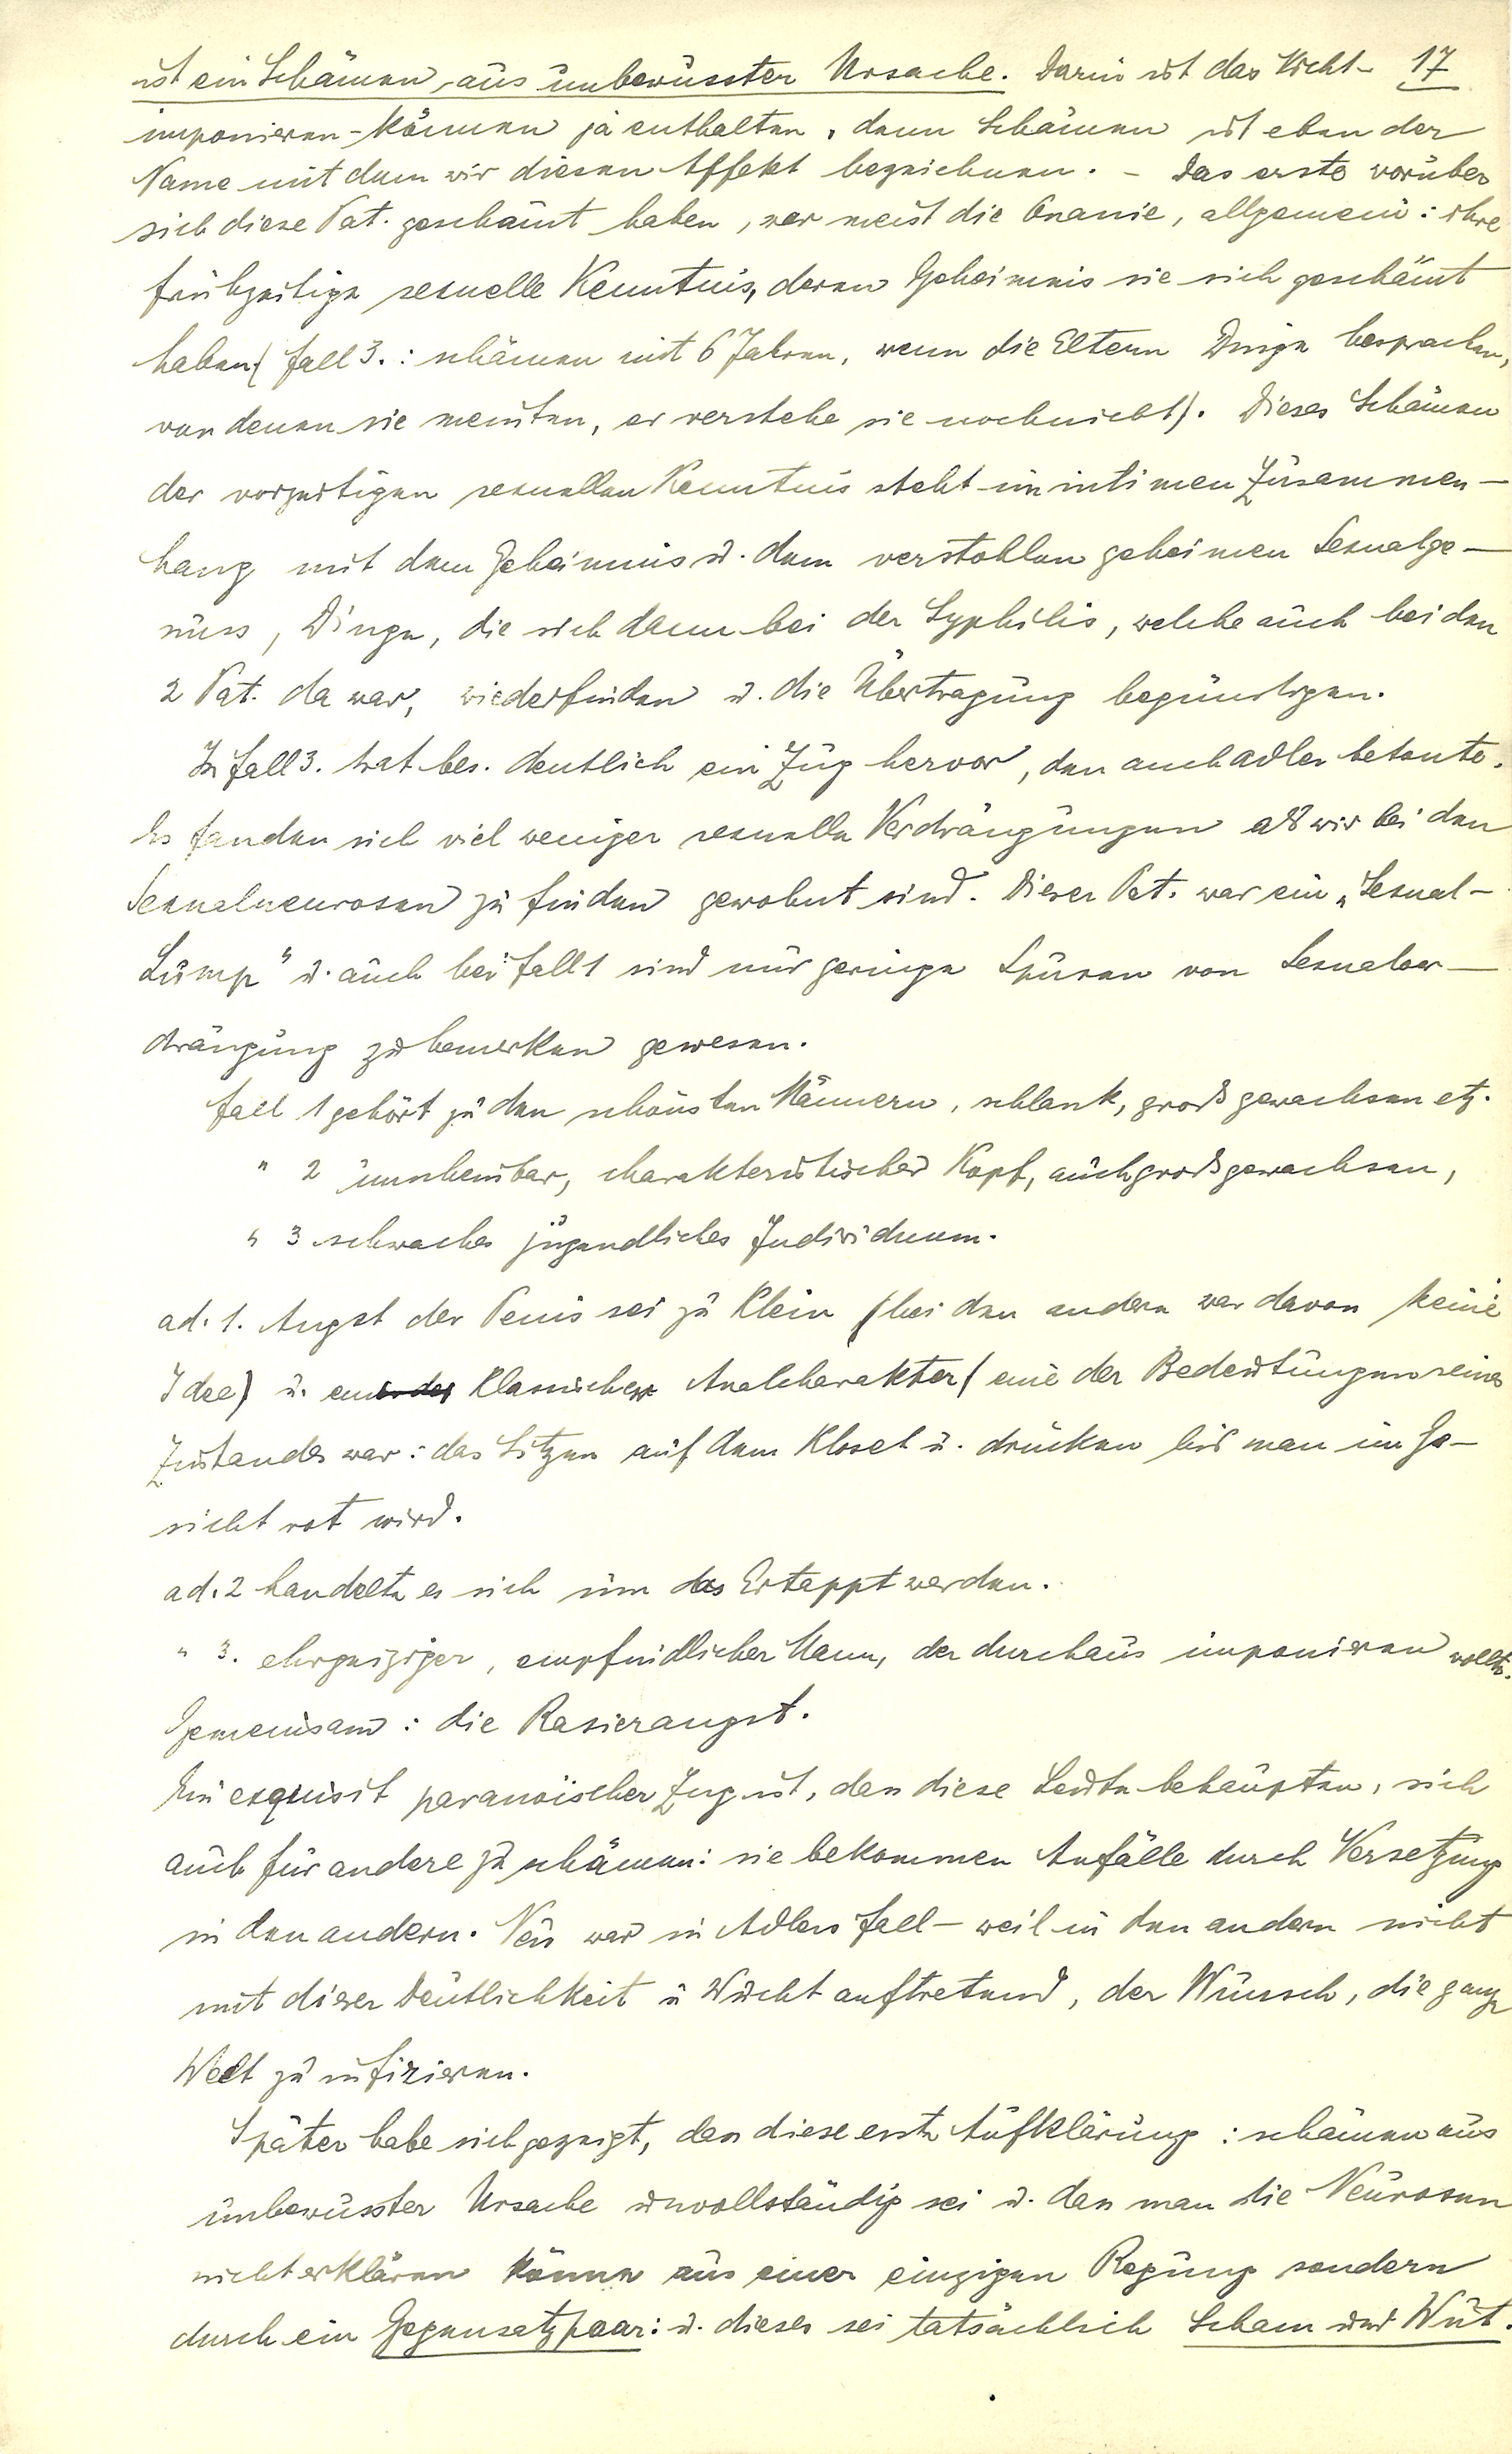 ist ein Schämen aus unbewusster Ursache. Darin ist das Nicht- 17
imponieren-Können ja enthalten, denn Schämen ist eben der
Name mit dem wir diesen Affekt bezeichnen. - Das erste worüber
sich diese Pat. geschämt haben, war meist die Onanie, allgemein: ihre
frühzeitige sexuelle Kenntnis, deren Geheimnis sie sich geschämt
haben (Fall 3.: schämen mit 6 Jahren, wenn die Eltern Dinge besprachen,
von denen sie meinten, er verstehe sie noch nicht). Dieses Schämen
der vorzeitigen sexuellen Kenntnis steht im intimen Zusammen-
hang mit dem Geheimnis u. dem verstohlen geheimen Sexualge-
nuss, Dinge, die sich dann bei der Syphilis, welche auch bei den
2 Pat. da war, wiederfinden u. die Übertragung begünstigen.
In Fall 3. trat bes. deutlich ein Zug hervor, den auch Adler betonte.
Es fanden sich viel weniger sexuelle Verdrängungen als wir bei den
Sexualneurosen zu finden gewohnt sind. Dieser Pat. war ein „Sexual-
Lump" u. auch bei Fall 1 sind nur geringe Spuren von Sexualver-
drängung zu bemerken gewesen.
Fall 1 gehört zu den schönsten Männern, schlank, groß gewachsen etz.
" 2 unscheinbar, charakteristischer Kopf, auch groß gewachsen,
" 3 schwaches jugendliches Individuum.
ad. 1. Angst der Penis sei zu klein (bei den andern war davon keine
Idee) u. ein klassischer Analcharakter (eine der Bedeutungen seines
Zustandes war: das Sitzen auf dem Kloset u. drücken bis man im Ge-
sicht rot wird.
ad. 2 handelte es sich um das Ertappt werden.
" 3. ehrgeiziger, empfindlicher Mann, der durchaus imponieren wollte.
Gemeinsam: die Rasierangst.
Ein exquisit paranoischer Zug ist, dass diese Leute behaupten, sich
auch für andere zu schämen: sie bekommen Anfälle durch Versetzung
in den andern. Neu war in Adlers Fall - weil in den andern nicht
mit dieser Deutlichkeit u Wucht auftretend, der Wunsch, die ganze
Welt zu infizieren.
Später habe sich gezeigt, dass diese erste Aufklärung: schämen aus
unbewusster Ursache unvollständig sei u. dass man die Neurosen
nicht erklären könne aus einer einzigen Regung sondern
durch ein Gegensatzpaar: u. dieses sei tatsächlich Scham und Wut.